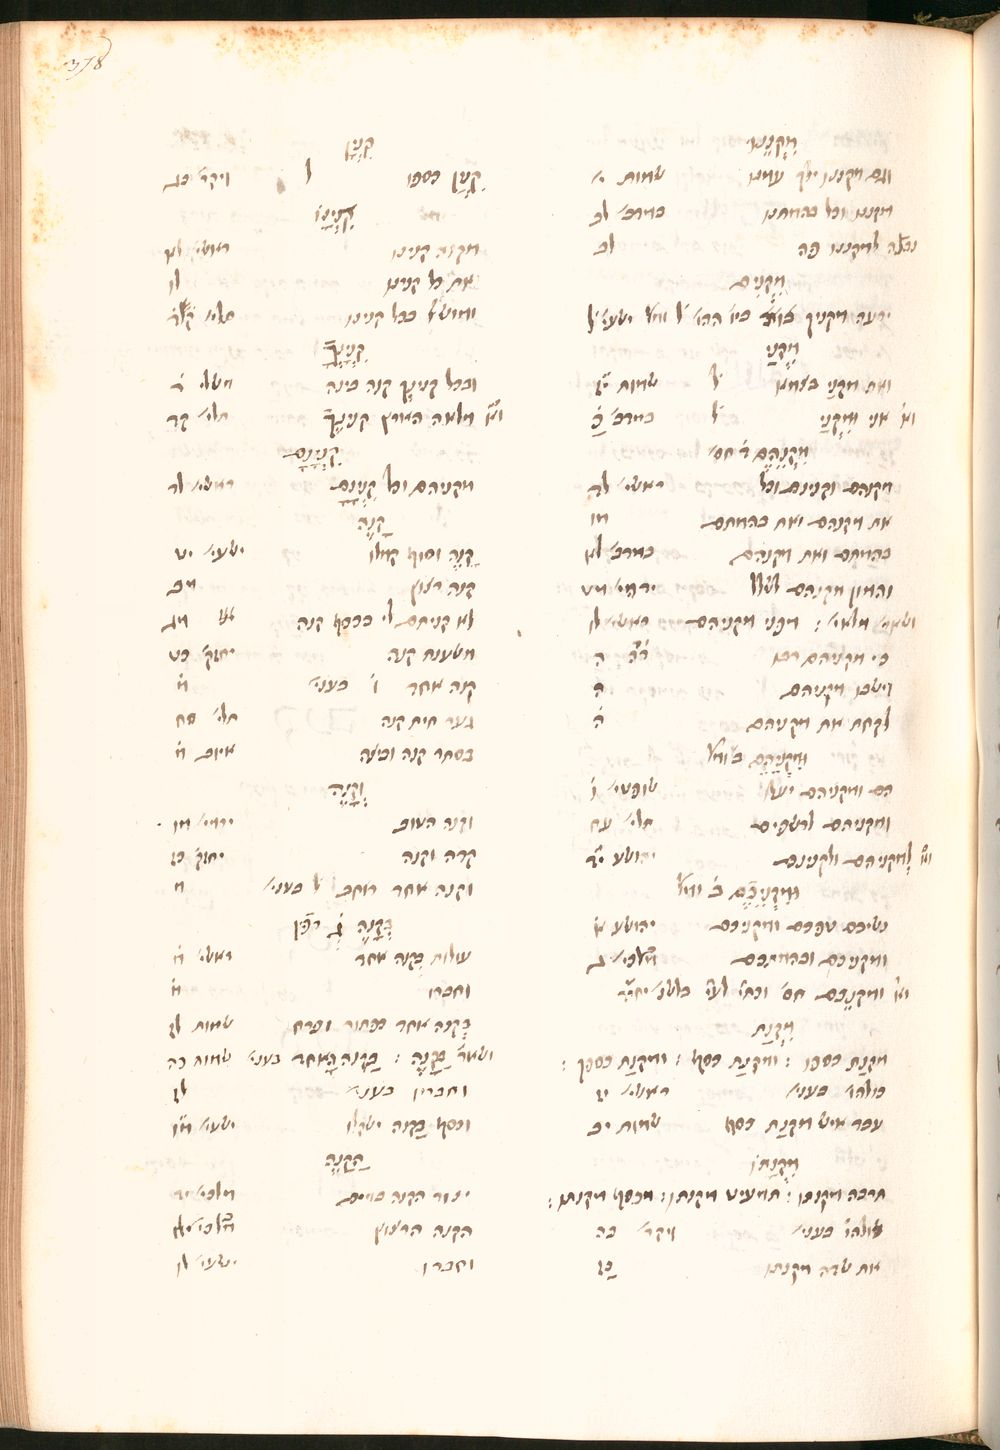 378
מִקְנֵנוּ
וגם מקננו ילך עמנו שמות י
מקננו וכל בהמתנו במדב׳ לב
נבנה למקננו פה לב
מִקְנִים
ירעה מקניך ביו׳ ההו׳ ל׳ ישעי׳ ל
מִקְנַי
ואת מקני בצמא ל׳ שמות יז
וא׳ אני ומקני ל׳ במדב׳ כ
מִקְנֵהֶם
מקנהם וקנינם וכל ראשי׳ לד
את מקנהם ואת בהמתם מו
בהמתם ואת מקנהם במדב׳ לא
והמון מקנהם לשלל ירמי׳ מט
ושאר׳ מלאי׳ : מפני מקניהם ראשי׳ לו
כי מקניהם רבו
וישבו מקניהם ה
לקחת את מקניהם ה
וּמִקְנֵיהֶם ב׳ ומל׳
הם ומקניהם יעלו שופטי׳ ו
ומקניהם לרשפים תלי׳ עח
למקניהם ולקנינם יהושע יד
וּמִקְנֵיכֶם ב׳ ומל׳
נשיכם טפכם ומקניכם יהושע א
ומקניכם ובהמתכם מלכי׳ ג
וא׳ ומקנכם חס׳
מִקְנַת
מקנת כספו : ומקנת כסף : ומקנת כספך :
כולהו׳ בעני׳ ראשי׳ יז
עבד איש מקנת כסף שמות יב
מִקְנָתוֹ
תרבה מקנתו : תמעיט מקנתו : מכסף מקנתו :
כולהו׳ בעני׳ ויקר׳ כה
את שדה מקנתו כז
קִנְיַן
קִנְיַן כספו ל ויקר׳ כב
קִנְיָנוֹ
מקנה קנינו ראשי׳ לא
את כל קנינו לו
ומושל בכל קנינו תלי׳ קה
קִנְיָנֶךָ
ובכל קנינך קנה בינה משלי ד
מלאה הארץ קנינך תלי׳ קד
קִנְיָנָם
מקניהם וכל קנינם ראשי׳ לד
קָנֶה
קנה וסוף קמלו ישעי׳ יט
קנה רצוץ מב
לא קנית לי בכסף קנה מג
משענת קנה יחזק׳ כט
קנה אחד ו׳ בעני׳ מ
גער חית קנה תלי׳ סח
בסתר קנה ובצה איוב מ
וְקָנֶה
וקנה הטוב ירמי׳ ו
קדה וקנה יחזק׳ כז
וקנה אחד רוחב ל׳ בעני׳ מ
בְּקָנֶה
עולות בקנה אחד ראשי׳ מ
וחברו מ
בקנה אחד כפתור ופרח שמות לז
ושאר׳ בַּקָּנֶה : בקנה האחד בעני׳ שמות כה
וחבריו בעני׳ לז
וכסף בקנה ישקלו ישעי׳ מו
הַקָּנֶה
ינוד הקנה במים מלכי׳ יד
הקנה הרצוץ מלכי׳
וחברו ישעי׳ לו